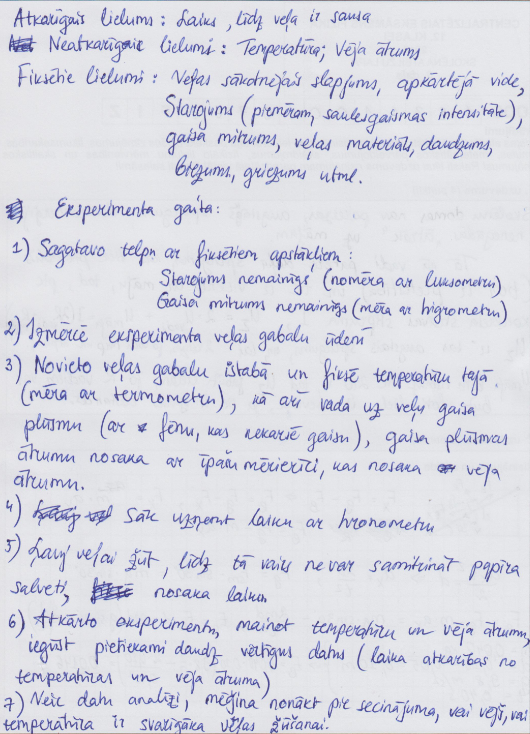 Atkarīgais lielums: Laiks, līdz veļa ir sausa
Neatkarīgais lielumi: Temperatūra; Vēja ātrums
Fiksētie lielumi: Veļas sākotnējais slapjums, apkārtējā vide,
Starojums (piemēram, saulesgaismas intensitāte),
gaisa mitrums, veļas materiāls, daudzums,
biezums, griezums utml.
Eksperimenta gaita:
1) Sagatavo telpu ar fiksētiem apstākļiem:
Starojums nemainīgs (nomēra ar luksometru)
Gaisa mitrums nemainīgs (mēra ar higrometru)
2) Izmērcē eksperimenta veļas gabalu ūdenī
3) Novieto veļas gabalu istabā un fiksē temperatūru tajā
(mēra ar termometru), kā arī vada uz veļu gaisa
plūsmu (ar fēnu, kas nekarsē gaisu), gaisa plūsmas
ātrumu nosaka ar īpašu mērierīci, kas nosaka vēja
ātrumu.
4) Sāk uzņemt laiku ar hronometru
5) Ļauj veļai žūt, līdz tā vairs nevar samitrināt papīra
salveti, nosaka laiku
6) Atkārto eksperimentu, mainot temperatūru un vēja ātrumu,
iegūst pietiekami daudz vērtīgus datus (laika atkarības no
temperatūras un vēja ātruma)
7) Veic datu analīzi, mēģina nonākt pie secinājuma, vai vējš, vai
temperatūra ir svarīgāka veļas žūšanai.